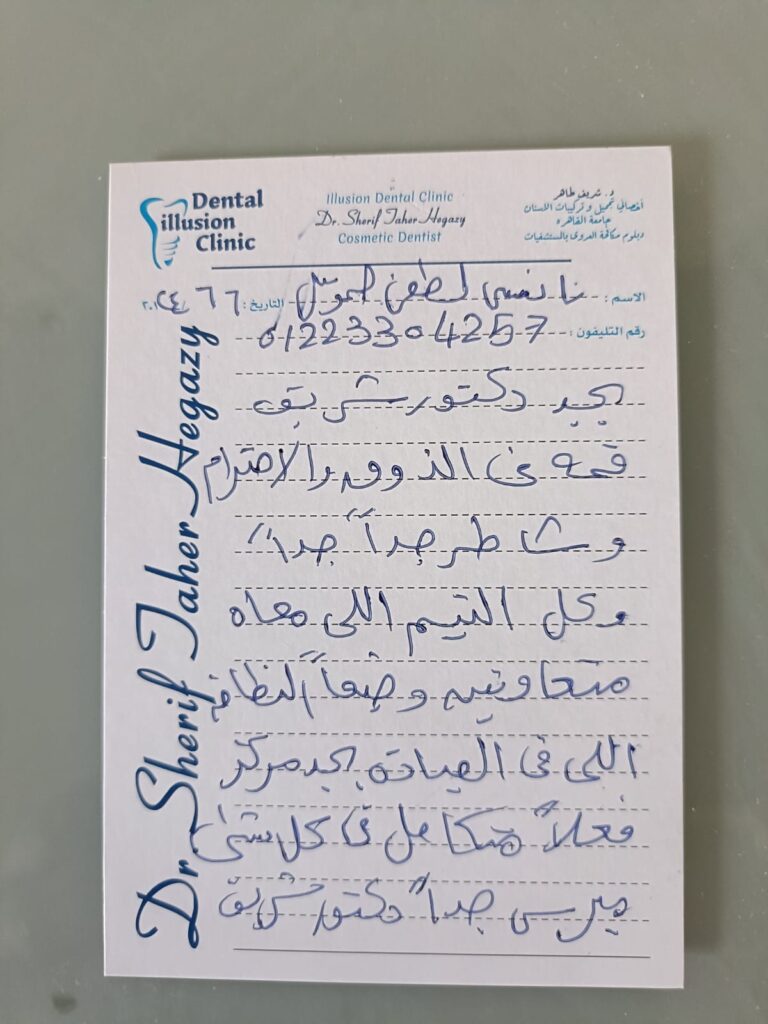 Dental
illusion
Clinic
Illusion Dental Clinic
Dr. Sherif Taher Hegazy
Cosmetic Dentist
د. شريف طاهر
أخصائي تجميل و تركيبات الاسنان
جامعة القاهره
دبلوم مكافحة العدوى بالمستشفيات
الاسم : نانسى لطفى
التاريخ : ٦ / ٦ / ٢٠٢٤
رقم التليفون : 01223304257
بجد دكتور شريف
قمه فى الذوق والاحترام
وشاطر جداً جداً
وكل التيم اللى معاه
متعاونيه وطبعاً النظافه
اللى فى العيادة بجد مركز
فعلاً متكامل فى كل شئ
ميرسى جداً دكتور شريف
Dr. Sherif Taher Hegazy